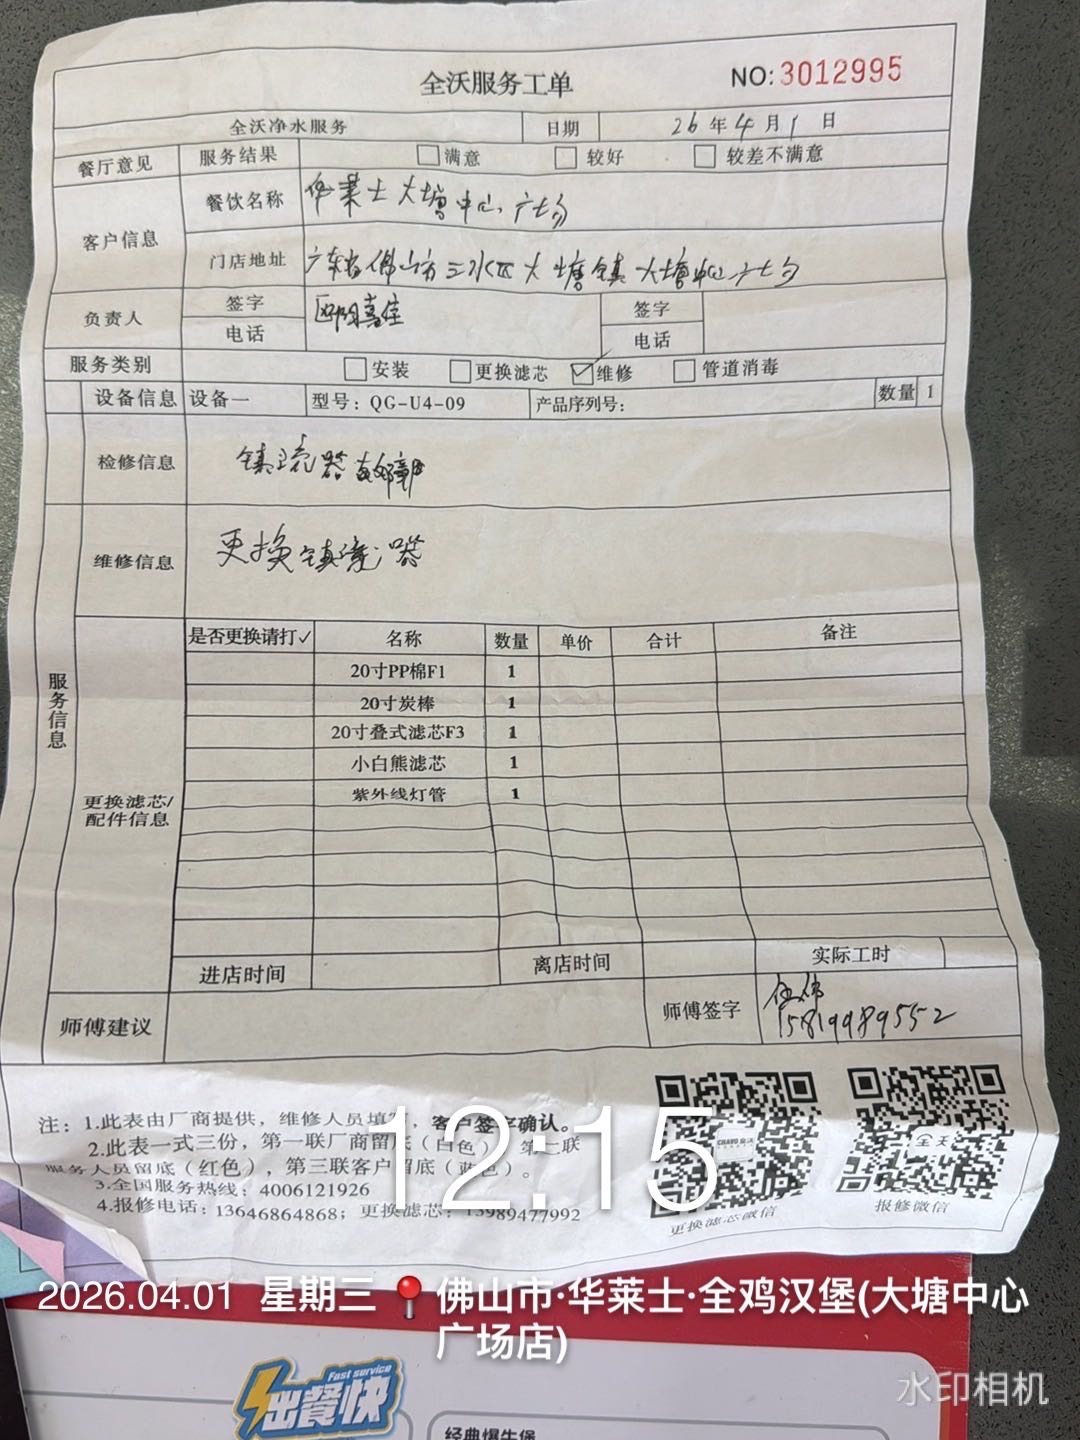 全沃服务工单
NO:3012995
全沃净水服务 日期 26年4月1日
餐厅意见 服务结果 满意 较好 较差不满意
客户信息 餐饮名称 华莱士大塘中心广场
门店地址 广东省佛山市三水区大塘镇大塘中心广场
负责人 签字 签字
电话 电话
服务类别 安装 更换滤芯 ✓维修 管道消毒
设备信息 设备一 型号：QG-U4-09 产品序列号： 数量 1
检修信息 镇流器故障
维修信息 更换镇流器
服务信息
更换滤芯/配件信息
是否更换请打✓ 名称 数量 单价 合计 备注
20寸PP棉F1 1
20寸炭棒 1
20寸叠式滤芯F3 1
小白熊滤芯 1
紫外线灯管 1
进店时间 离店时间 实际工时
师傅建议 师傅签字
15819989552
注：1.此表由厂商提供，维修人员填写，客户签字确认。
2.此表一式三份，第一联厂商留底（白色） 第二联
服务人员留底（红色），第三联客户留底（蓝色）。
3.全国服务热线：4006121926
4.报修电话：13646864868；更换滤芯：13989477992
更换滤芯微信 报修微信
CHAVO 全沃
全天
12:15
2026.04.01 星期三 佛山市·华莱士·全鸡汉堡(大塘中心
广场店)
水印相机
Fast service
出餐快
经典爆牛堡